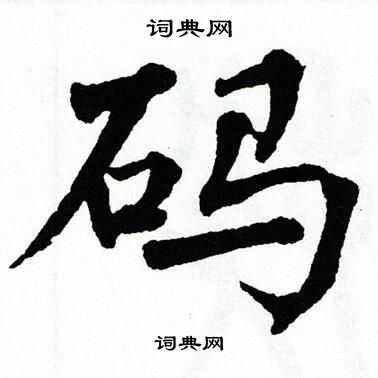 词典网
码
词典网